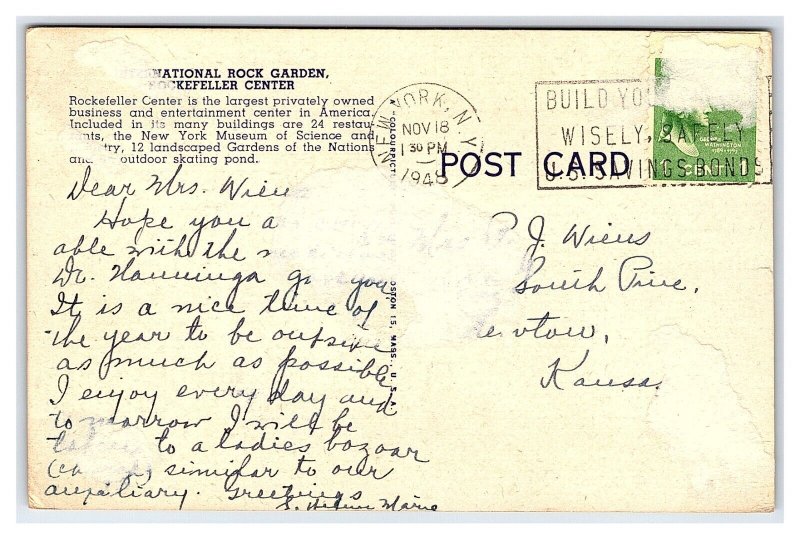 NATIONAL ROCK GARDEN,
ROCKEFELLER CENTER
Rockefeller Center is the largest privately owned
business and entertainment center in America.
Included in its many buildings are 24 restau-
nts, the New York Museum of Science and
try, 12 landscaped Gardens of the Nations
and outdoor skating pond.
NEW YORK, N.Y.
NOV 18
30 PM
1948
BUILD YO
WISELY, SAFELY
U.S. SAVINGS BONDS
WASHINGTON
1789-1797
CENT
POST CARD
COLOURPICT
OSTON 15, MASS., U.S.A.
Dear Mrs. Wiens
Hope you a
able with the
Dr. Hanninga g you
It is a nice time of
the year to be outside
as much as possible
I enjoy every day and
tomorrow I will be
to a ladies bozoar
similar to our
auxiliary. Greetings
S. Helene Marie
P. J. Wiens
South Pine,
ewton,
Kansa